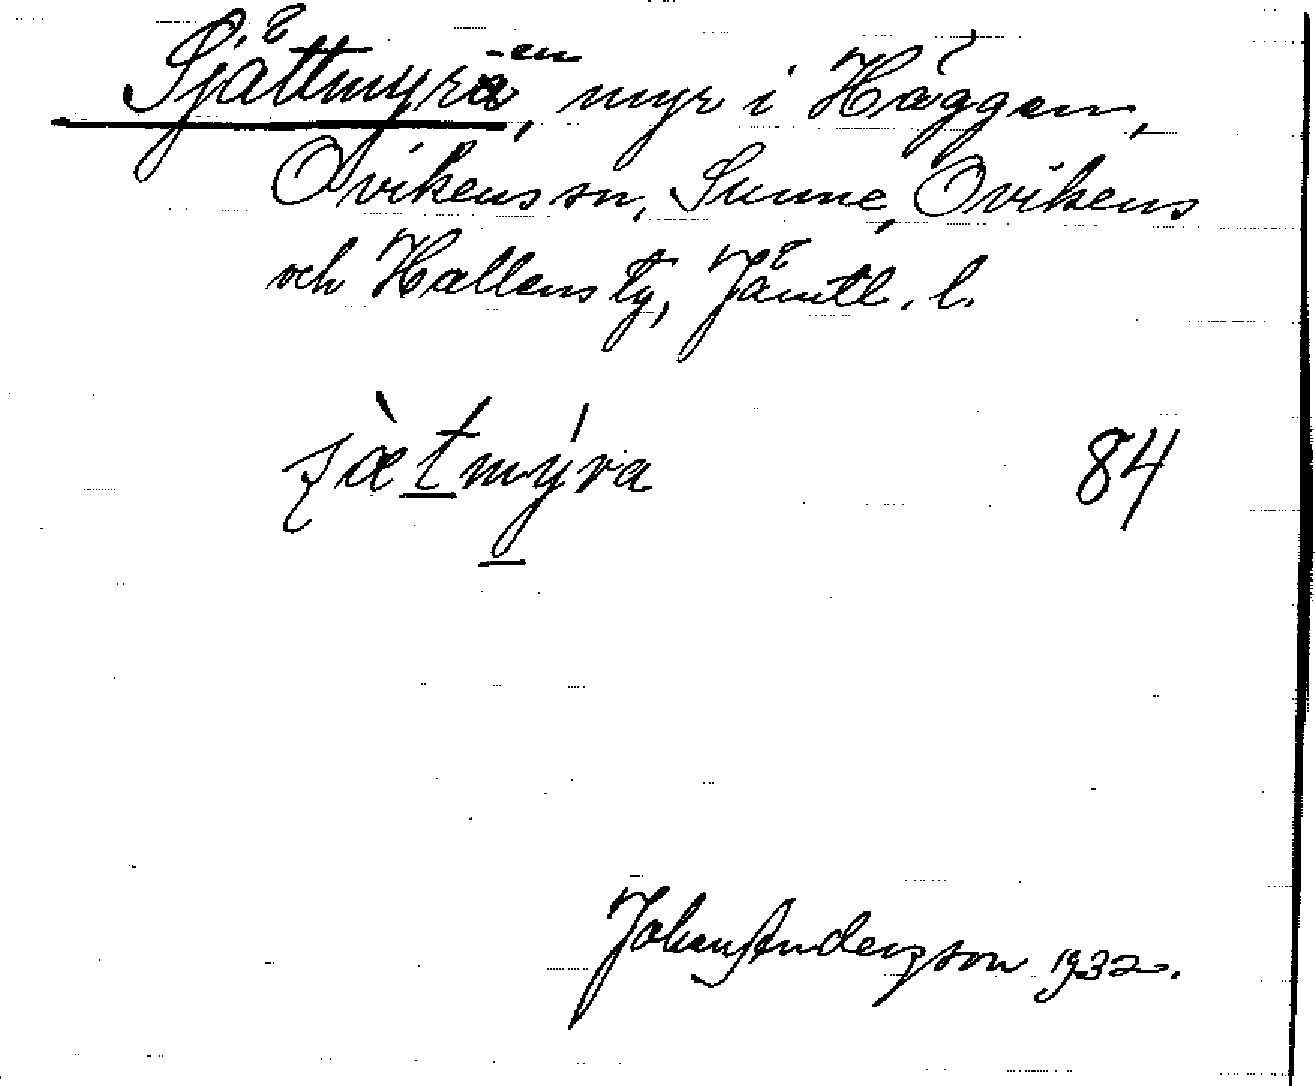 Sjättmyrä -en, myr i Häggen,
Ovikens sn, Sunne, Ovikens
och Hallens tg, Jämtl. l.
ʃæ̀tmýra 84
Johan Anderzson 1932.